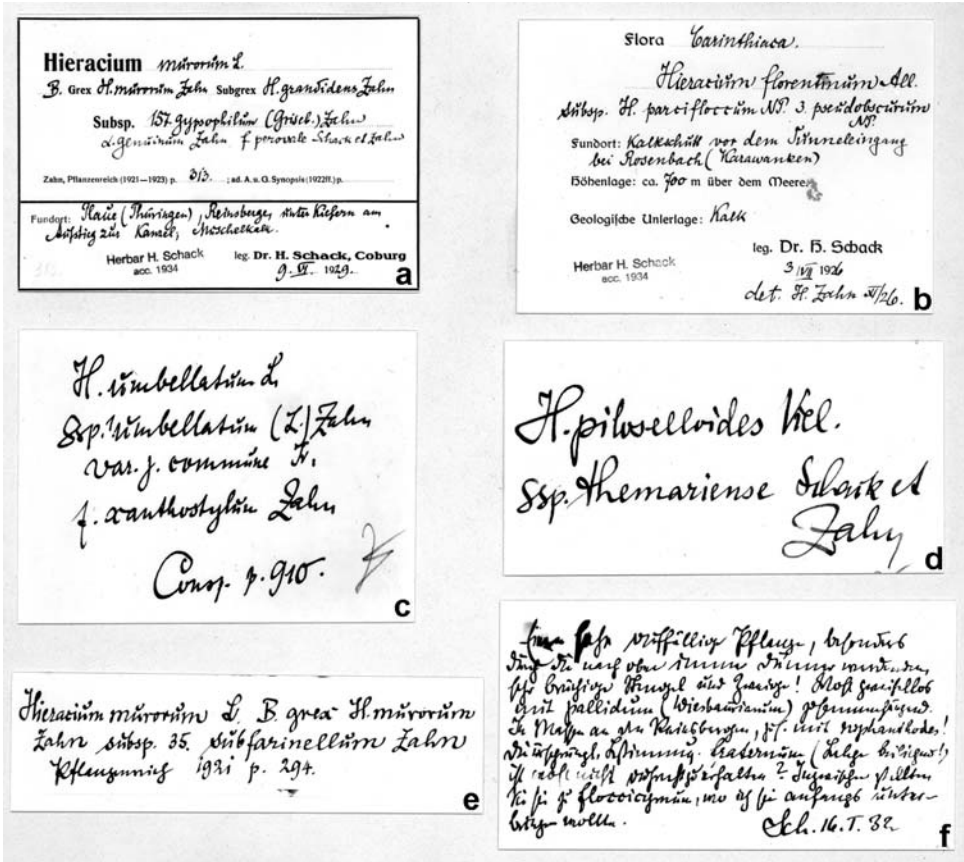 Hieracium murorum L.
B. Grex H. murorum Zahn Subgrex H. grandidens Zahn
Subsp. 157. gypsophilum (Griseb.) Zahn
α. genuinum Zahn f. perovale Schack et Zahn
Zahn, Pflanzenreich (1921—1923) p. 313. ; ad. A. u. G. Synopsis (1922ff.) p.
Fundort: Plaue (Thüringen), Reinsberge, unter Kiefern am
Aufstieg zur Kanzel; Muschelkalk.
Herbar H. Schack
acc. 1934
leg. Dr. H. Schack, Coburg
9. VI. 1929.
a
Flora Carinthiaca.
Hieracium florentinum All.
subsp. H. parcifloccum NP. 3. pseudobscurum
NP.
Fundort: Kalkschutt vor dem Tunneleingang
bei Rosenbach (Karawanken)
Höhenlage: ca. 700 m über dem Meere
Geologische Unterlage: Kalk
leg. Dr. H. Schack
Herbar H. Schack
acc. 1934
3 VII 1926
det. H. Zahn XI/26.
b
H. umbellatum L.
ssp. umbellatum (L.) Zahn
var. j. commune Fr.
f. xanthostylum Zahn
Consp. p. 910.
c
H. piloselloides Vill.
ssp. themariense Schack et
Zahn
d
Hieracium murorum L. B. grex H. murorum
Zahn subsp. 35. subfarinellum Zahn
Pflanzenreich 1921 p. 294.
e
auffällige Pflanze, besonders
durch die nach oben immer dünner werdenden,
sehr brüchige Stengel und Zweige! Wohl zweifellos
mit pallidum (Wiesbaurianum) zusammenhängend.
In Massen an den Reinsbergen, mit
Die ursprüngl. Bestimmung fraternum
ist wohl nicht aufrechtzuerhalten? Inzwischen stellten
Sie sie zu floccicymum, wo ich sie anfangs unter-
bringen wollte.
Sch. 16. I. 32
f